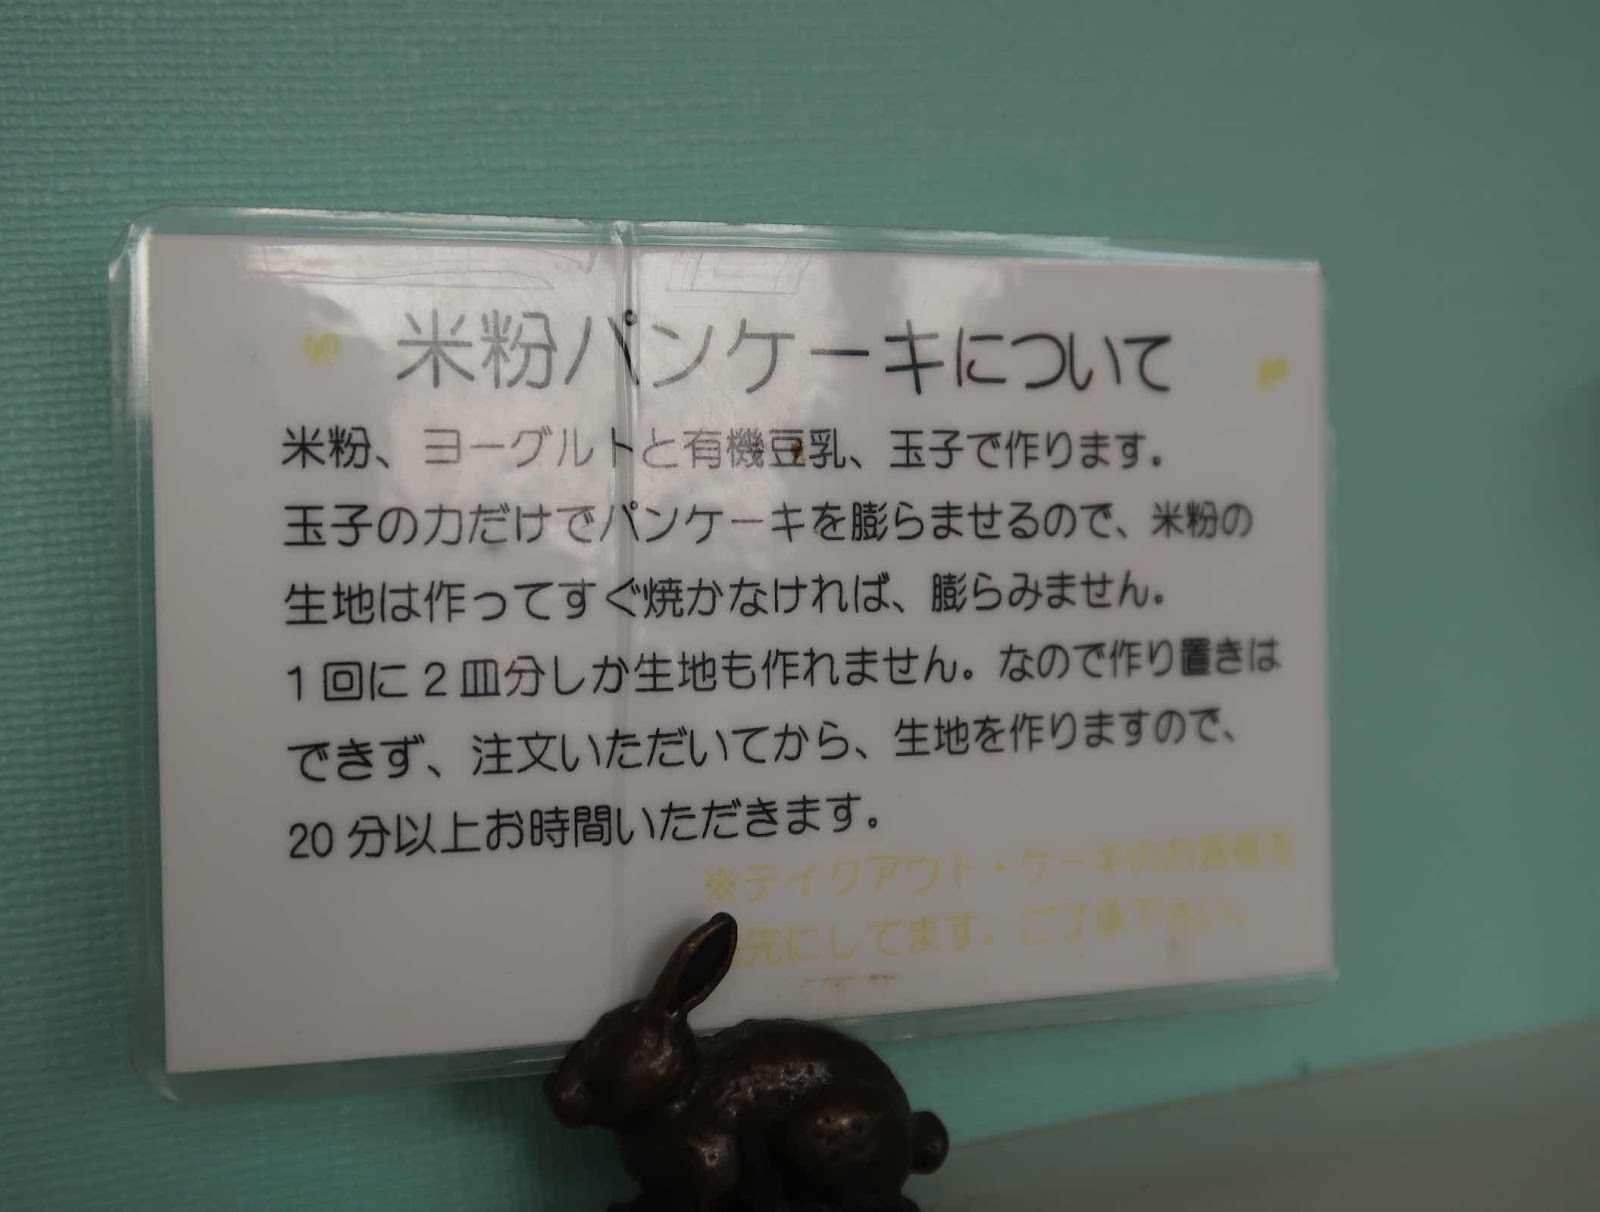 米粉パンケーキについて
米粉、ヨーグルトと有機豆乳、玉子で作ります。
玉子の力だけでパンケーキを膨らませるので、米粉の
生地は作ってすぐ焼かなければ、膨らみません。
1回に2皿分しか生地も作れません。なので作り置きは
できず、注文いただいてから、生地を作りますので、
20分以上お時間いただきます。
※テイクアウト・ケーキのお客様を
先にしてます。ご了承下さい。